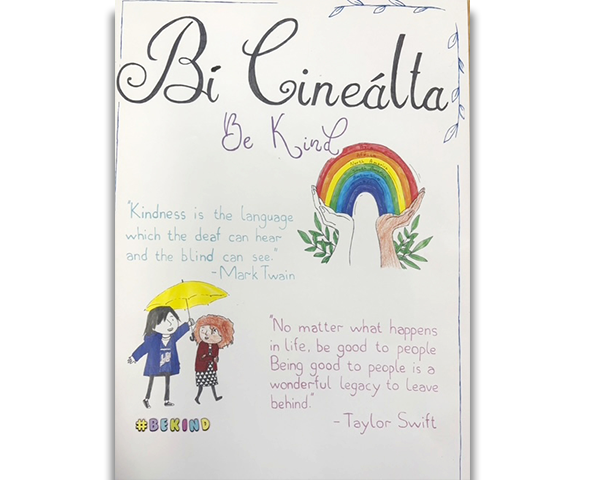 Bí Cineálta
Be Kind
"Kindness is the language
which the deaf can hear
and the blind can see."
-Mark Twain
"No matter what happens
in life, be good to people
Being good to people is a
wonderful legacy to leave
behind."
-Taylor Swift
#BEKIND